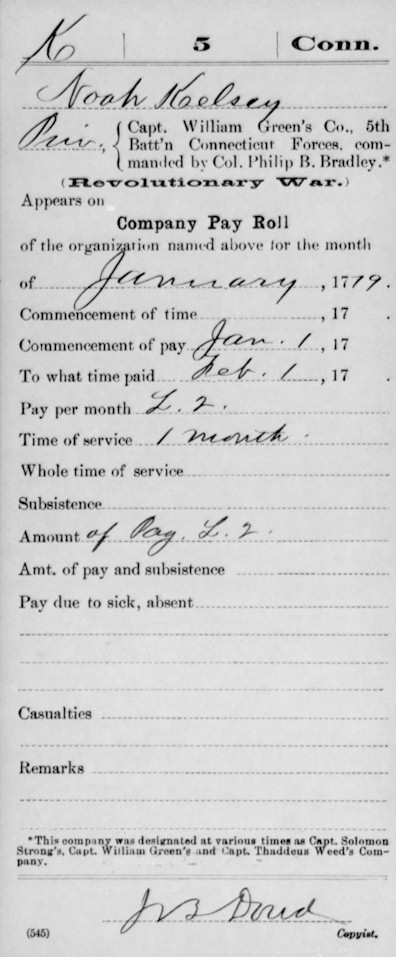 K | 5 | Conn.
Noah Kelsey
Priv., { Capt. William Green's Co., 5th
Batt'n Connecticut Forces, com-
manded by Col. Philip B. Bradley.*
(Revolutionary War.)
Appears on
Company Pay Roll
of the organization named above for the month
of January, 1779.
Commencement of time , 17 .
Commencement of pay Jan. 1, 17 .
To what time paid Feb. 1, 17 .
Pay per month L. 2.
Time of service 1 month.
Whole time of service
Subsistence
Amount of Pay. L. 2.
Amt. of pay and subsistence
Pay due to sick, absent
Casualties
Remarks
*This company was designated at various times as Capt. Solomon
Strong's, Capt. William Green's and Capt. Thaddeus Weed's Com-
pany.
(545) Copyist.